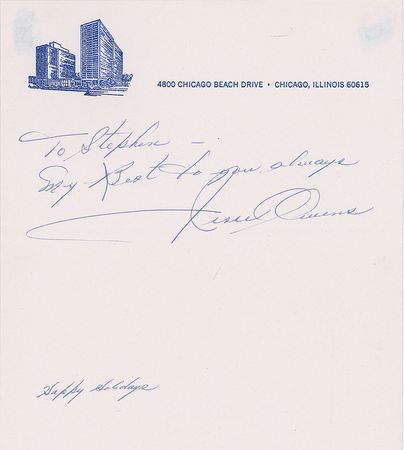 4800 CHICAGO BEACH DRIVE • CHICAGO, ILLINOIS 60615
To Stephen –
My Best to you always
Jesse Owens
Happy Holidays